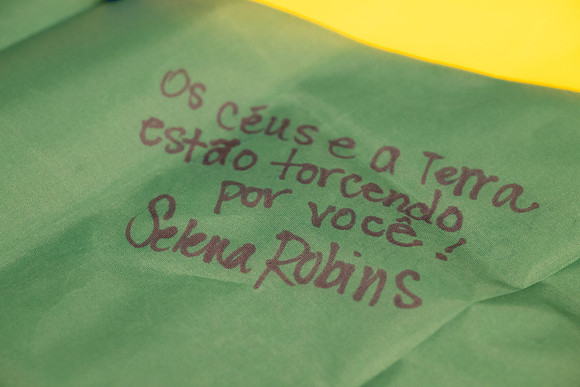 Os Céus e a Terra
estão torcendo
por você!
Selena Robins